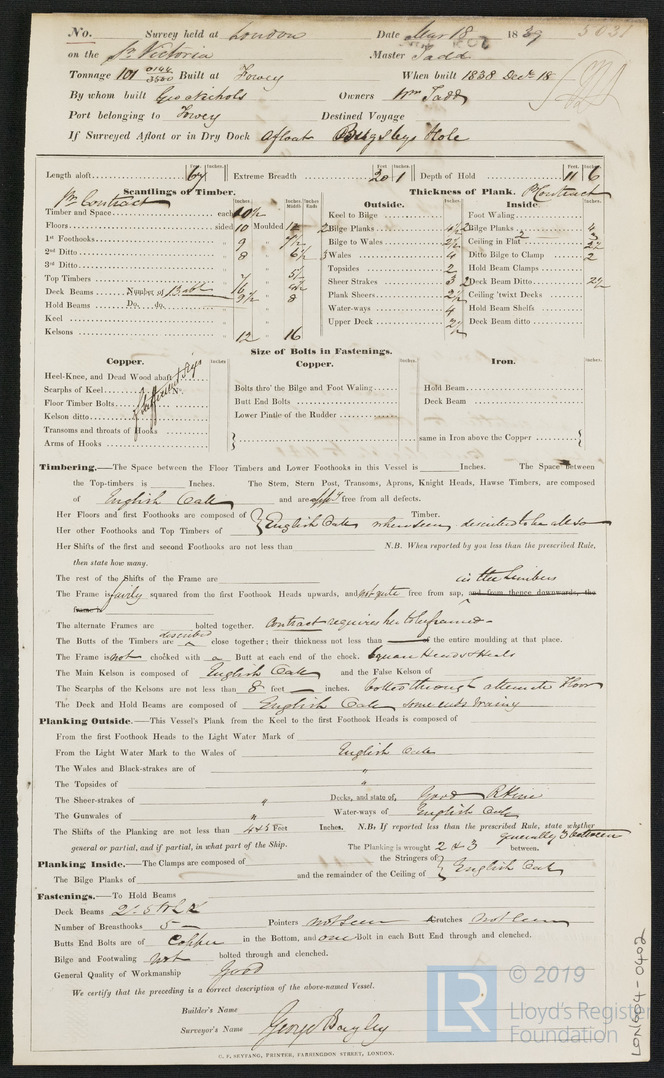 No. Survey held at London Date Mar 18 1839 5031
on the Sr Victoria Master Tadd
Tonnage 101 0144/3500 Built at Fowey When built 1838 Decr 18
By whom built Geo Nichols Owners Wm Tadd
Port belonging to Fowey Destined Voyage
If Surveyed Afloat or in Dry Dock Afloat Bugsbys Hole
Length aloft 67 Feet. Inches. Extreme Breadth 20 1 Feet. Inches. Depth of Hold 11 6 Feet. Inches.
Scantlings of Timber. Thickness of Plank. Pr Contract
Pr Contract Outside. Inside.
Timber and Space each 10½ Keel to Bilge Foot Waling
Floors sided 10 Moulded 12 2 Bilge Planks 4½ 2 Bilge Planks 4
1st Foothooks 9 7½ Bilge to Wales 2½ Ceiling in Flat 2
2nd Ditto 8 6½ 3 Wales 4 Ditto Bilge to Clamp 2
3rd Ditto Topsides 2 Hold Beam Clamps
Top Timbers 7 5½ Sheer Strakes 3 2 Deck Beam Ditto 2½
Deck Beams Number of 13 16 Plank Sheers 2½ Ceiling 'twixt Decks
Hold Beams Do. do. 9½ 8 Water-ways 4 Hold Beam Shelfs
Keel Upper Deck 2½ Deck Beam ditto
Kelsons 12 16
Size of Bolts in Fastenings.
Copper. Copper. Iron.
Heel-Knee, and Dead Wood abaft
Scarphs of Keel No. Bolts thro' the Bilge and Foot Waling Hold Beam
Floor Timber Bolts Butt End Bolts Deck Beam
Kelson ditto Lower Pintle of the Rudder
Transoms and throats of Hooks
Arms of Hooks same in Iron above the Copper
Sufficient
Timbering.—The Space between the Floor Timbers and Lower Foothooks in this Vessel is Inches. The Space between
the Top-timbers is Inches. The Stem, Stern Post, Transoms, Aprons, Knight Heads, Hawse Timbers, are composed
of English Oak and are free from all defects.
Her Floors and first Foothooks are composed of Timber.
English Oak where seen
Her other Foothooks and Top Timbers of
Her Shifts of the first and second Foothooks are not less than N.B. When reported by you less than the prescribed Rule,
then state how many.
The rest of the Shifts of the Frame are in the timbers
The Frame is fairly squared from the first Foothook Heads upwards, and not quite free from sap, and from thence downwards, the
frame is
The alternate Frames are bolted together. Contract requires her to be framed
The Butts of the Timbers are described close together; their thickness not less than of the entire moulding at that place.
The Frame is not chocked with a Butt at each end of the chock. Square Heads & Heels
The Main Kelson is composed of English Oak and the False Kelson of
The Scarphs of the Kelsons are not less than 8 feet inches. bolted through alternate floor
The Deck and Hold Beams are composed of English Oak some ends wainy
Planking Outside.—This Vessel's Plank from the Keel to the first Foothook Heads is composed of
From the first Foothook Heads to the Light Water Mark of
From the Light Water Mark to the Wales of English Oak
The Wales and Black-strakes are of "
The Topsides of "
The Sheer-strakes of " Decks, and state of, Good
The Gunwales of " Water-ways of English Oak
The Shifts of the Planking are not less than 4 & 5 Feet Inches. N.B. If reported less than the prescribed Rule, state whether
general or partial, and if partial, in what part of the Ship. The Planking is wrought 2 & 3 between. generally 3 between
Planking Inside.—The Clamps are composed of the Stringers of
English Oak
The Bilge Planks of and the remainder of the Ceiling of
Fastenings.—To Hold Beams
Deck Beams
Number of Breasthooks 5 Pointers not seen Crutches not seen
Butts End Bolts are of Copper in the Bottom, and one Bolt in each Butt End through and clenched.
Bilge and Footwaling not bolted through and clenched.
General Quality of Workmanship Good
We certify that the preceding is a correct description of the above-named Vessel.
Builder's Name
Surveyor's Name George Bayley
C. F. SEYFANG, PRINTER, FARRINGDON STREET, LONDON.
LR © 2019
Lloyd's Register
Foundation
LON604-0402